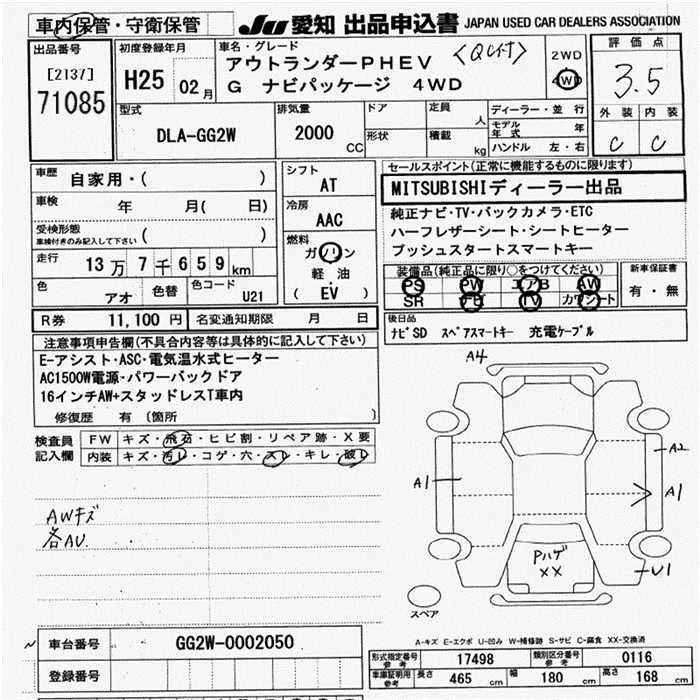 車内保管・守衛保管
JU 愛知 出品申込書 JAPAN USED CAR DEALERS ASSOCIATION
出品番号
[2137]
71085
初度登録年月
H25 02月
車名・グレード
アウトランダーPHEV <QC付>
G ナビパッケージ 4WD
2WD
4WD
評価点
3.5
外装 内装
C C
型式
DLA-GG2W
排気量
2000 CC
ドア
形状
定員 人
積載 kg
ディーラー・並行
モデル年式 年
ハンドル 左・右
車歴 自家用・( )
車検 年 月( 日)
受検形態
車検付きのみ記入して下さい ( )
走行 13万7千659km
色 アオ 色替 色コード U21
シフト
AT
冷房
AAC
燃料
ガソリン
軽油
( EV )
R券 11,100円 名変通知期限 月 日
セールスポイント(正常に機能するものに限ります)
MITSUBISHIディーラー出品
純正ナビ・TV・バックカメラ・ETC
ハーフレザーシート・シートヒーター
プッシュスタートスマートキー
装備品(純正品に限り○をつけてください)
PS PW エアB AW
SR ナビ TV カワシート
新車保証書
有・無
後日品
ナビSD スペアスマートキー 充電ケーブル
注意事項申告欄(不具合内容等は具体的に記入して下さい)
E-アシスト・ASC・電気温水式ヒーター
AC1500W電源・パワーバックドア
16インチAW+スタッドレスT車内
修復歴 有 (箇所 )
検査員記入欄
FW キズ・飛石・ヒビ割・リペア跡・X要
内装 キズ・汚レ・コゲ・穴・スレ・キレ・破レ
AWキズ
各AU
A4
A2
A1
A1
Pハゲ
XX
U1
スペア
A-キズ E-エクボ U-凹み W-補修跡 S-サビ C-腐食 XX-交換済
車台番号 GG2W-0002050
登録番号
形式指定番号 参考 17498 類別区分番号 参考 0116
車庫証明用 参考 長さ 465 cm 幅 180 cm 高さ 168 cm